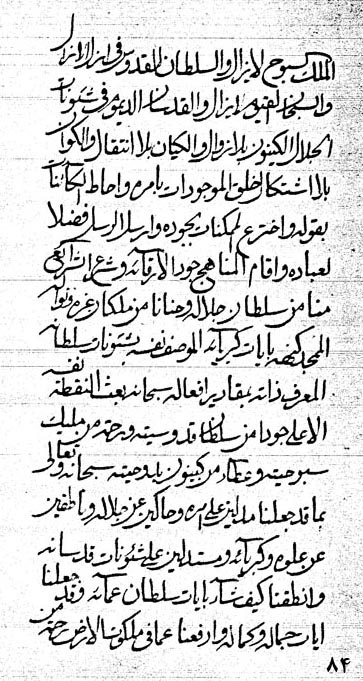 الملك السبوح لايزال والسلطان القدوس في ازل الازال
والسبحان القيوم لايزال والقدسان الديموم في شئونات
الجلال الكينون بلا زوال والكيان بلا انتقال والكوان
بلا اشتكال خلق الموجودات بامره واحاط الكائنات
بقوله واخترع الممكنات بجوده وارسل الرسل فضلا
لعباده واقام المناهج جودا لارقائه وشرع الشرائع
منا من سلطان جلاله وحنانا من ملكان عزه ونواله
الممجد كنهه بايات كبريائه الموصف نفسه بشئونات سلطانه
المعرف ذاته بمقادير افعاله سبحانه بعث النقطة نفسه
الاعلى جودا من سلطان قدوسيته ورحمة من مليك
سبوحيته وعطاء من كينون بدوحيته سبحانه وتعالى
بما قد جعلنا مدلين على امره وحاكين عن جلاله وناطقين
عن علوه وكبريائه ومستدلين على شئونات قدسانه
وانطقنا كيف شاء بايات سلطان عمائه وقد جعلنا
ايات جماله وكماله وارفعنا عما في ملكوت الارض رحمة من
٨٤